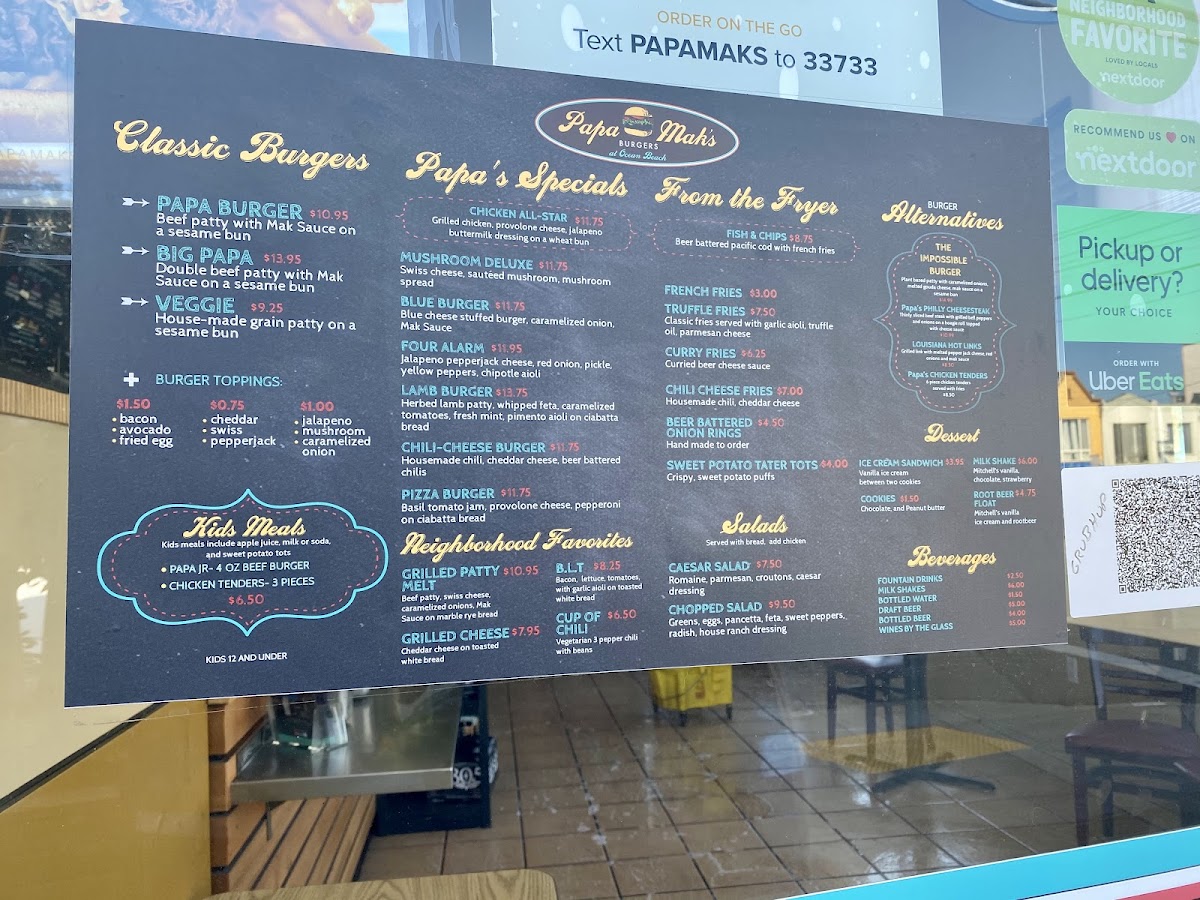 ORDER ON THE GO
Text PAPAMAKS to 33733
NEIGHBORHOOD
FAVORITE
LOVED BY LOCALS
nextdoor
RECOMMEND US ON
nextdoor
Pickup or
delivery?
YOUR CHOICE
ORDER WITH
Uber Eats
GRUBHUB
Papa Mak's
BURGERS
at Ocean Beach
Classic Burgers
PAPA BURGER $10.95
Beef patty with Mak Sauce on
a sesame bun
BIG PAPA $13.95
Double beef patty with Mak
Sauce on a sesame bun
VEGGIE $9.25
House-made grain patty on a
sesame bun
+ BURGER TOPPINGS:
$1.50
• bacon
• avocado
• fried egg
$0.75
• cheddar
• swiss
• pepperjack
$1.00
• jalapeno
• mushroom
• caramelized
onion
Kids Meals
Kids meals include apple juice, milk or soda,
and sweet potato tots
• PAPA JR- 4 OZ BEEF BURGER
• CHICKEN TENDERS- 3 PIECES
$6.50
KIDS 12 AND UNDER
Papa's Specials
CHICKEN ALL-STAR $11.75
Grilled chicken, provolone cheese, jalapeno
buttermilk dressing on a wheat bun
MUSHROOM DELUXE $11.75
Swiss cheese, sautéed mushroom, mushroom
spread
BLUE BURGER $11.75
Blue cheese stuffed burger, caramelized onion,
Mak Sauce
FOUR ALARM $11.95
Jalapeno pepperjack cheese, red onion, pickle,
yellow peppers, chipotle aioli
LAMB BURGER $13.75
Herbed lamb patty, whipped feta, caramelized
tomatoes, fresh mint, pimento aioli on ciabatta
bread
CHILI-CHEESE BURGER $11.75
Housemade chili, cheddar cheese, beer battered
chilis
PIZZA BURGER $11.75
Basil tomato jam, provolone cheese, pepperoni
on ciabatta bread
Neighborhood Favorites
GRILLED PATTY $10.95
MELT
Beef patty, swiss cheese,
caramelized onions, Mak
Sauce on marble rye bread
GRILLED CHEESE $7.95
Cheddar cheese on toasted
white bread
B.L.T $8.25
Bacon, lettuce, tomatoes,
with garlic aioli on toasted
white bread
CUP OF $6.50
CHILI
Vegetarian 3 pepper chili
with beans
From the Fryer
FISH & CHIPS $8.75
Beer battered pacific cod with french fries
FRENCH FRIES $3.00
TRUFFLE FRIES $7.50
Classic fries served with garlic aioli, truffle
oil, parmesan cheese
CURRY FRIES $6.25
Curried beer cheese sauce
CHILI CHEESE FRIES $7.00
Housemade chili, cheddar cheese
BEER BATTERED $4.50
ONION RINGS
Hand made to order
SWEET POTATO TATER TOTS $4.00
Crispy, sweet potato puffs
Salads
Served with bread, add chicken
CAESAR SALAD $7.50
Romaine, parmesan, croutons, caesar
dressing
CHOPPED SALAD $9.50
Greens, eggs, pancetta, feta, sweet peppers,
radish, house ranch dressing
BURGER
Alternatives
THE
IMPOSSIBLE
BURGER
Plant based patty with caramelized onions,
melted gouda cheese, mak sauce on a
sesame bun
Papa's PHILLY CHEESESTEAK
Thinly sliced beef steak with grilled bell peppers
and onions on a hoagie roll topped
with cheese sauce
LOUISIANA HOT LINKS
Grilled link with melted pepper jack cheese, red
onions and mak sauce
Papa's CHICKEN TENDERS
6 piece chicken tenders
served with fries
$8.50
Dessert
ICE CREAM SANDWICH $3.95
Vanilla ice cream
between two cookies
COOKIES $1.50
Chocolate, and Peanut butter
MILK SHAKE $6.00
Mitchell's vanilla,
chocolate, strawberry
ROOT BEER $4.75
FLOAT
Mitchell's vanilla
ice cream and rootbeer
Beverages
FOUNTAIN DRINKS $2.50
MILK SHAKES $6.00
BOTTLED WATER $1.50
DRAFT BEER $5.00
BOTTLED BEER $4.00
WINES BY THE GLASS $5.00